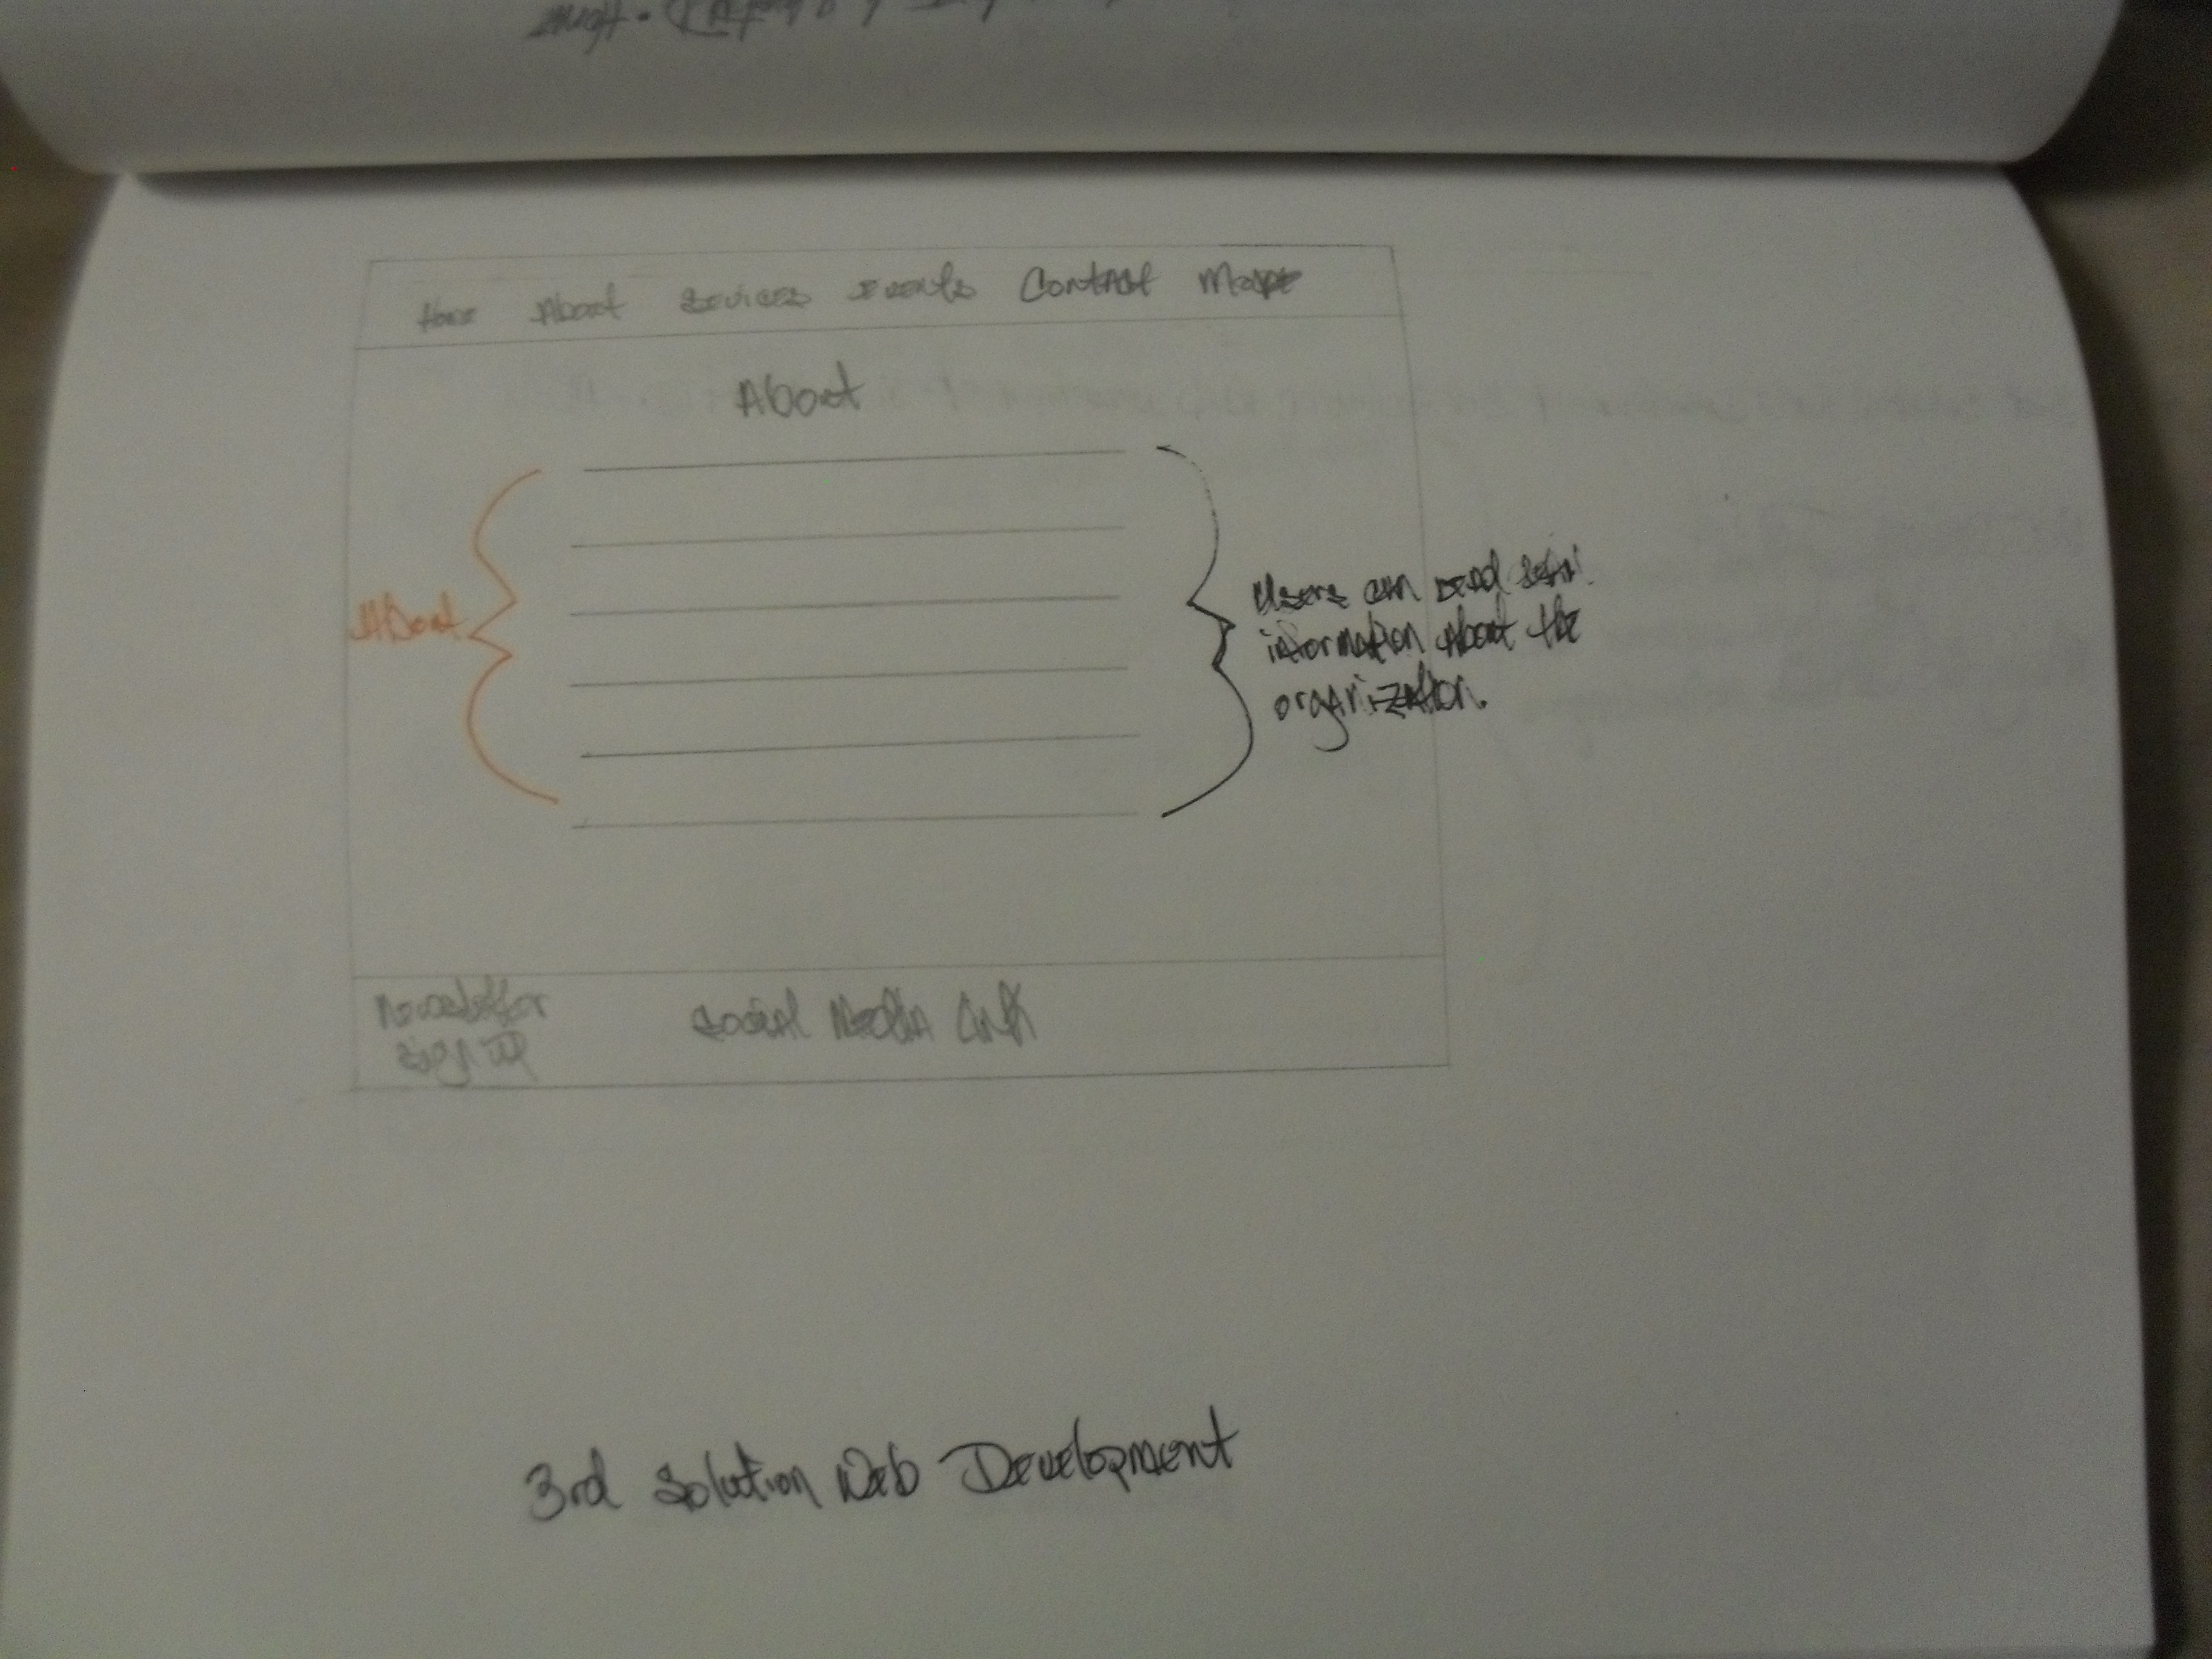 Home About Sevices Events Contact
About
About
Users can read
information About the
organization.
Newsletter
Sign Up
Social Media Link
3rd Solution Web Development